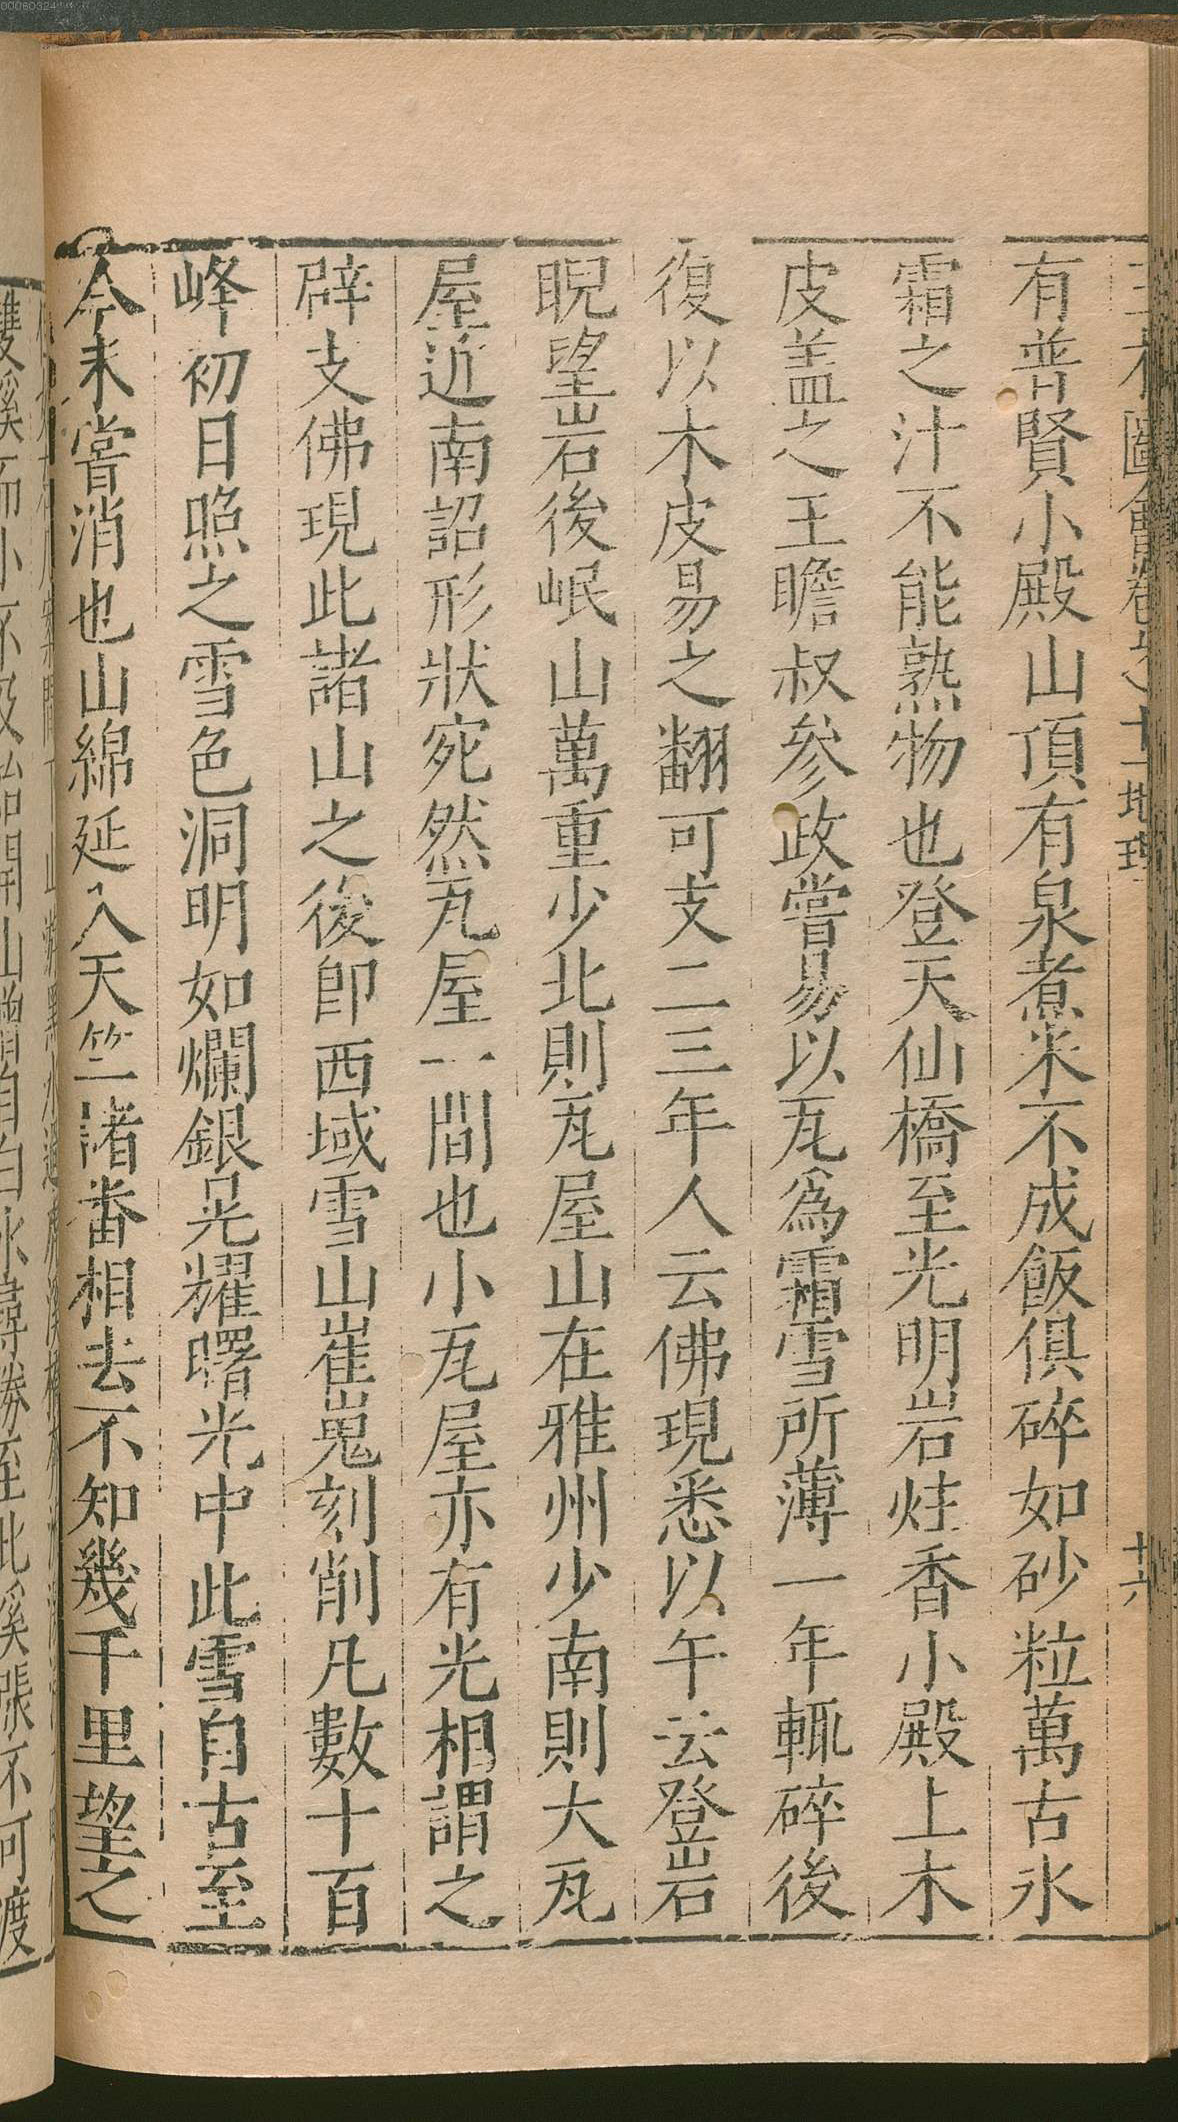 三才圖會卷之十一地理 十六
有普賢小殿山頂有泉煮米不成飯俱碎如砂粒萬古氷
霜之汁不能熟物也登天仙橋至光明岩炷香小殿上木
皮盖之王瞻叔參政嘗易以瓦為霜雪所薄一年輒碎後
復以木皮易之翻可支二三年人云佛現悉以午云登岩
睨望岩後岷山萬重少北則瓦屋山在雅州少南則大瓦
屋近南詔形狀宛然瓦屋一間也小瓦屋亦有光相謂之
辟支佛現此諸山之後卽西域雪山崔嵬刻削凡數十百
峰初日照之雪色洞明如爛銀晃耀曙光中此雪自古至
今未嘗消也山綿延入天竺諸番相去不知幾千里望之
雙溪而小不及始開山曾自白水尋勝至此溪漲不可渡